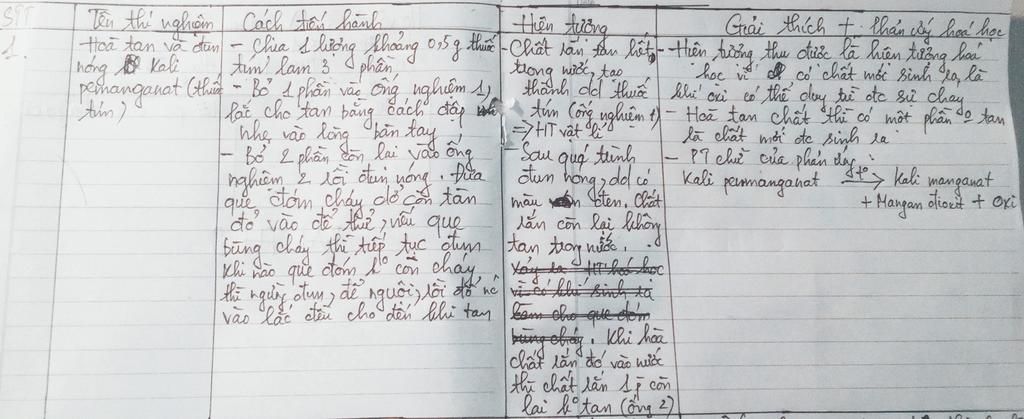 STT
Tên thí nghiệm
Cách tiến hành
Hiện tượng
Giải thích + phản ứng hoá học
1.
Hoà tan và đun
nóng Kali
pemanganat (thuốc
tím)
- Chia 1 lượng khoảng 0,5g thuốc
tím làm 3 phần
- Bỏ 1 phần vào ống nghiệm 1,
lắc cho tan bằng cách đập
nhẹ vào lòng bàn tay
- Bỏ 2 phần còn lại vào ống
nghiệm 2 rồi đun nóng. Đưa
que đóm cháy dở còn tàn
đỏ vào để thử, nếu que
bùng cháy thì tiếp tục đun
khi nào que đóm k° còn cháy
thì ngừng đun, để nguội, rồi đổ nc
vào lắc đều cho đến khi tan
- Chất rắn tan hết
trong nước, tạo
thành dd thuốc
tím (ống nghiệm 1)
=> HT vật lí
- Sau quá trình
đun nóng, dd có
màu đen. Chất
rắn còn lại không
tan trog nước.
Xảy ra HT hoá học
vì có khí sinh ra
làm cho que đóm
bùng cháy. Khi hòa
chất rắn đó vào nước
thì chất rắn 1 p còn
lại k° tan (ống 2)
- Hiện tượng thu được là hiện tượng hoá
học vì có chất mới sinh ra, là
khí oxi có thể duy trì đc sự cháy
- Hoà tan chất thì có một phần o tan
là chất mới đc sinh ra
- PT chữ của phản ứng:
Kali pemanganat t° → Kali manganat
+ Mangan đioxit + Oxi